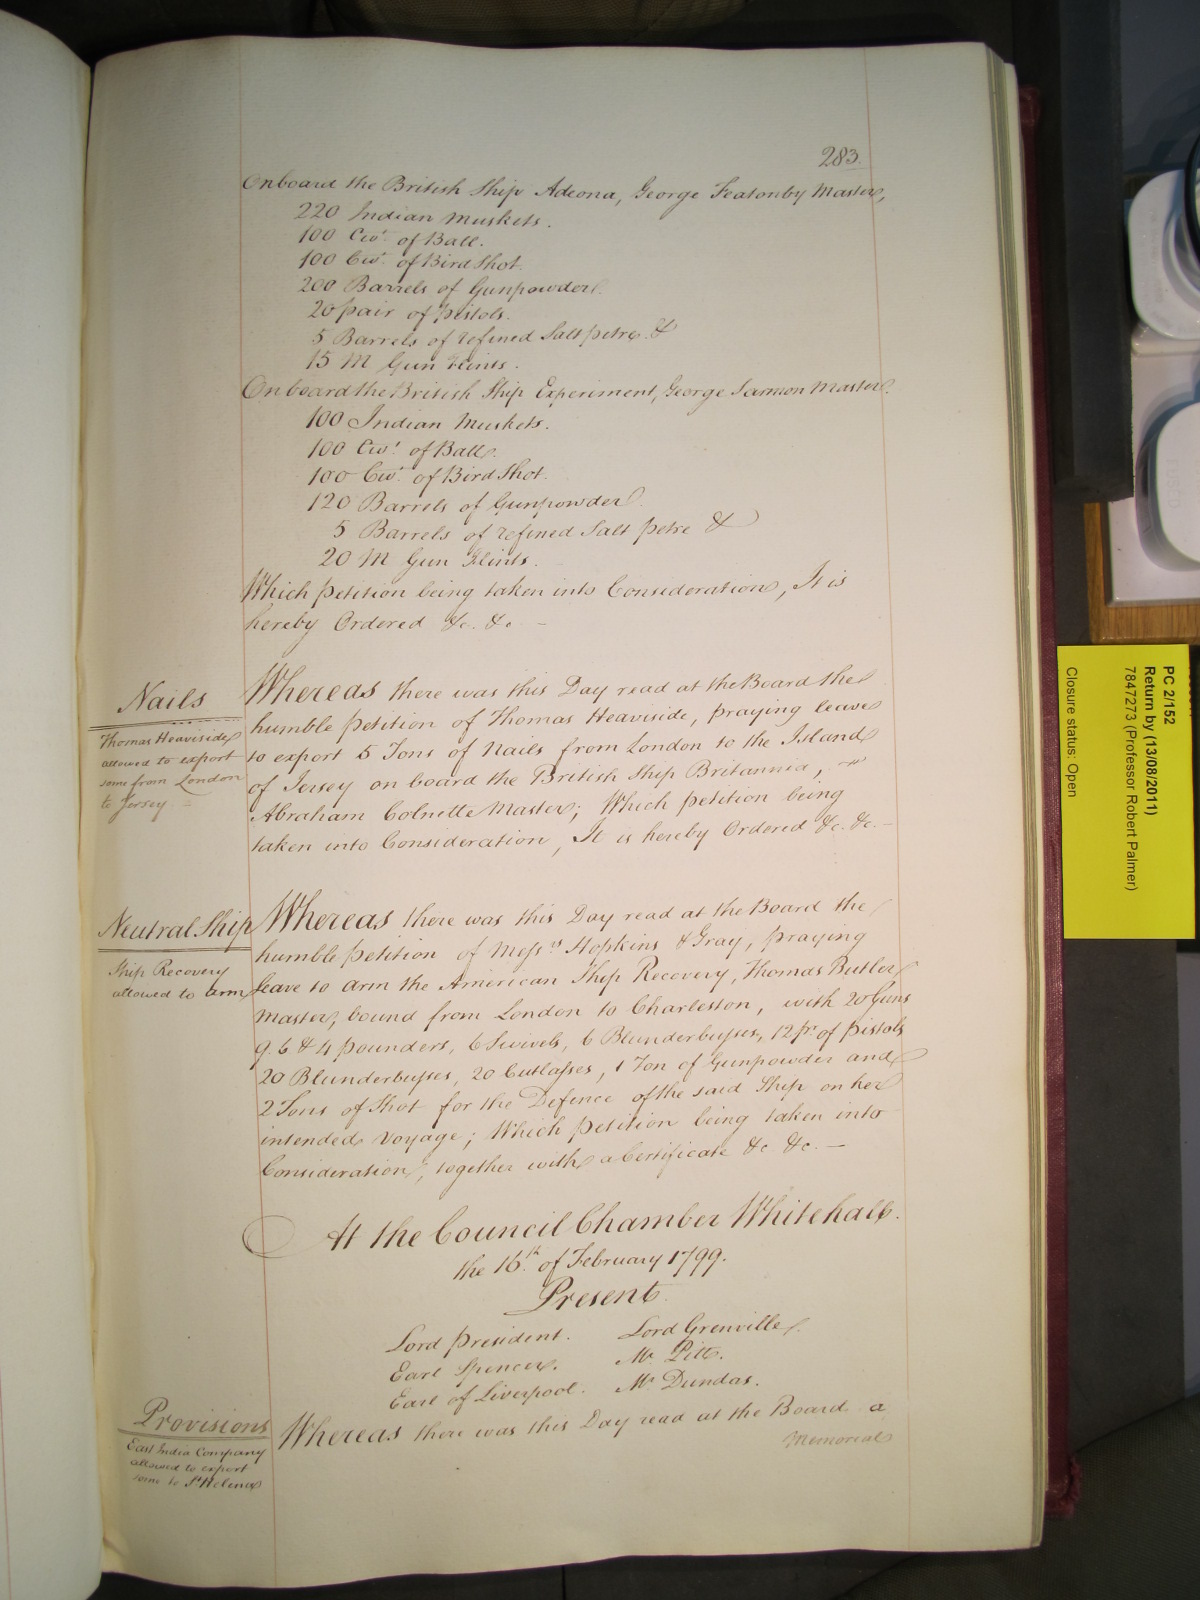 283.
Onboard the British Ship Adeona, George Featonby Master,
220 Indian Muskets.
100 Cwt. of Ball.
100 Cwt. of Bird Shot.
200 Barrels of Gunpowder.
20 pair of Pistols.
5 Barrels of refined Salt petre &
15 M Gun Flints.
On board the British Ship Experiment, George Master.
100 Indian Muskets.
100 Cwt of Ball.
100 Cwt. of Bird Shot.
120 Barrels of Gunpowder
5 Barrels of refined Salt petre &
20 M Gun Flints.
Which petition being taken into Consideration, It is
hereby Ordered &c. &c. -
Nails
Thomas Heaviside
allowed to export
some from London
to Jersey
Whereas there was this Day read at the Board the
humble petition of Thomas Heaviside, praying leave
to export 5 Tons of Nails from London to the Island
of Jersey on board the British Ship Britannia,
Abraham Colnette Master; Which petition being
taken into Consideration, It is hereby Ordered &c. &c. -
Neutral Ship
Ship Recovery
allowed to arm
Whereas there was this Day read at the Board the
humble petition of Messrs Hopkins & Gray, praying
leave to arm the American Ship Recovery, Thomas Butler
Master, bound from London to Charleston, with 20 Guns
9. 6 & 4 pounders, 6 Swivels, 6 Blunderbusses, 12 pr of pistols
20 Blunderbusses, 20 Cutlasses, 1 Ton of Gunpowder and
2 Tons of Shot for the Defence of the said Ship on her
intended Voyage; Which petition being taken into
Consideration, together with a Certificate &c &c. -
At the Council Chamber Whitehall.
the 16th. of February 1799.
Present
Lord President. Lord Grenville.
Earl Spencer. Mr Pitt.
Earl of Liverpool. Mr Dundas.
Provisions
East India Company
allowed to export
some to St Helena
Whereas there was this Day read at the Board a
Memorial
PC 2/152
Return by (13/08/2011)
7847273 (Professor Robert Palmer)
Closure status: Open